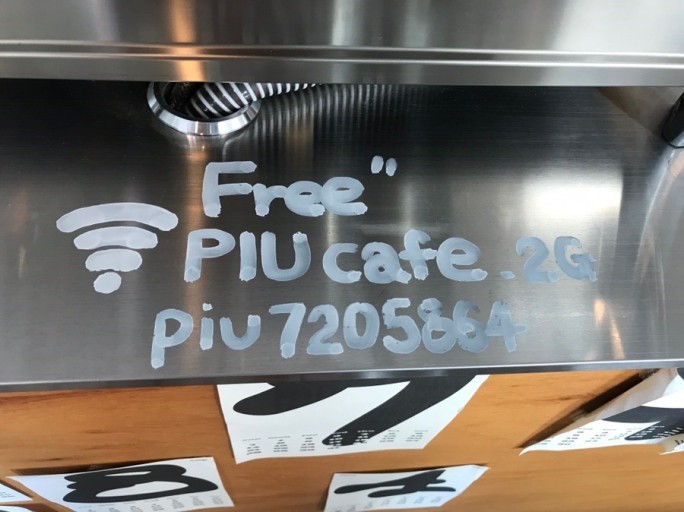 Free"
PIU cafe_2G
piu7205864